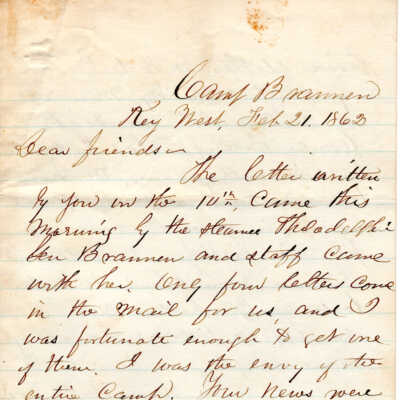 Camp Brannen
Key West, Feb 21. 1863
Dear friends
The letter written
by you on the 10th, came this
morning by the steamer
Gen Brannen and staff came
with her. Only four letters come
in the mail for us, and I
was fortunate enough to get one
of them. I was the envy of the
entire Camp. Your news were